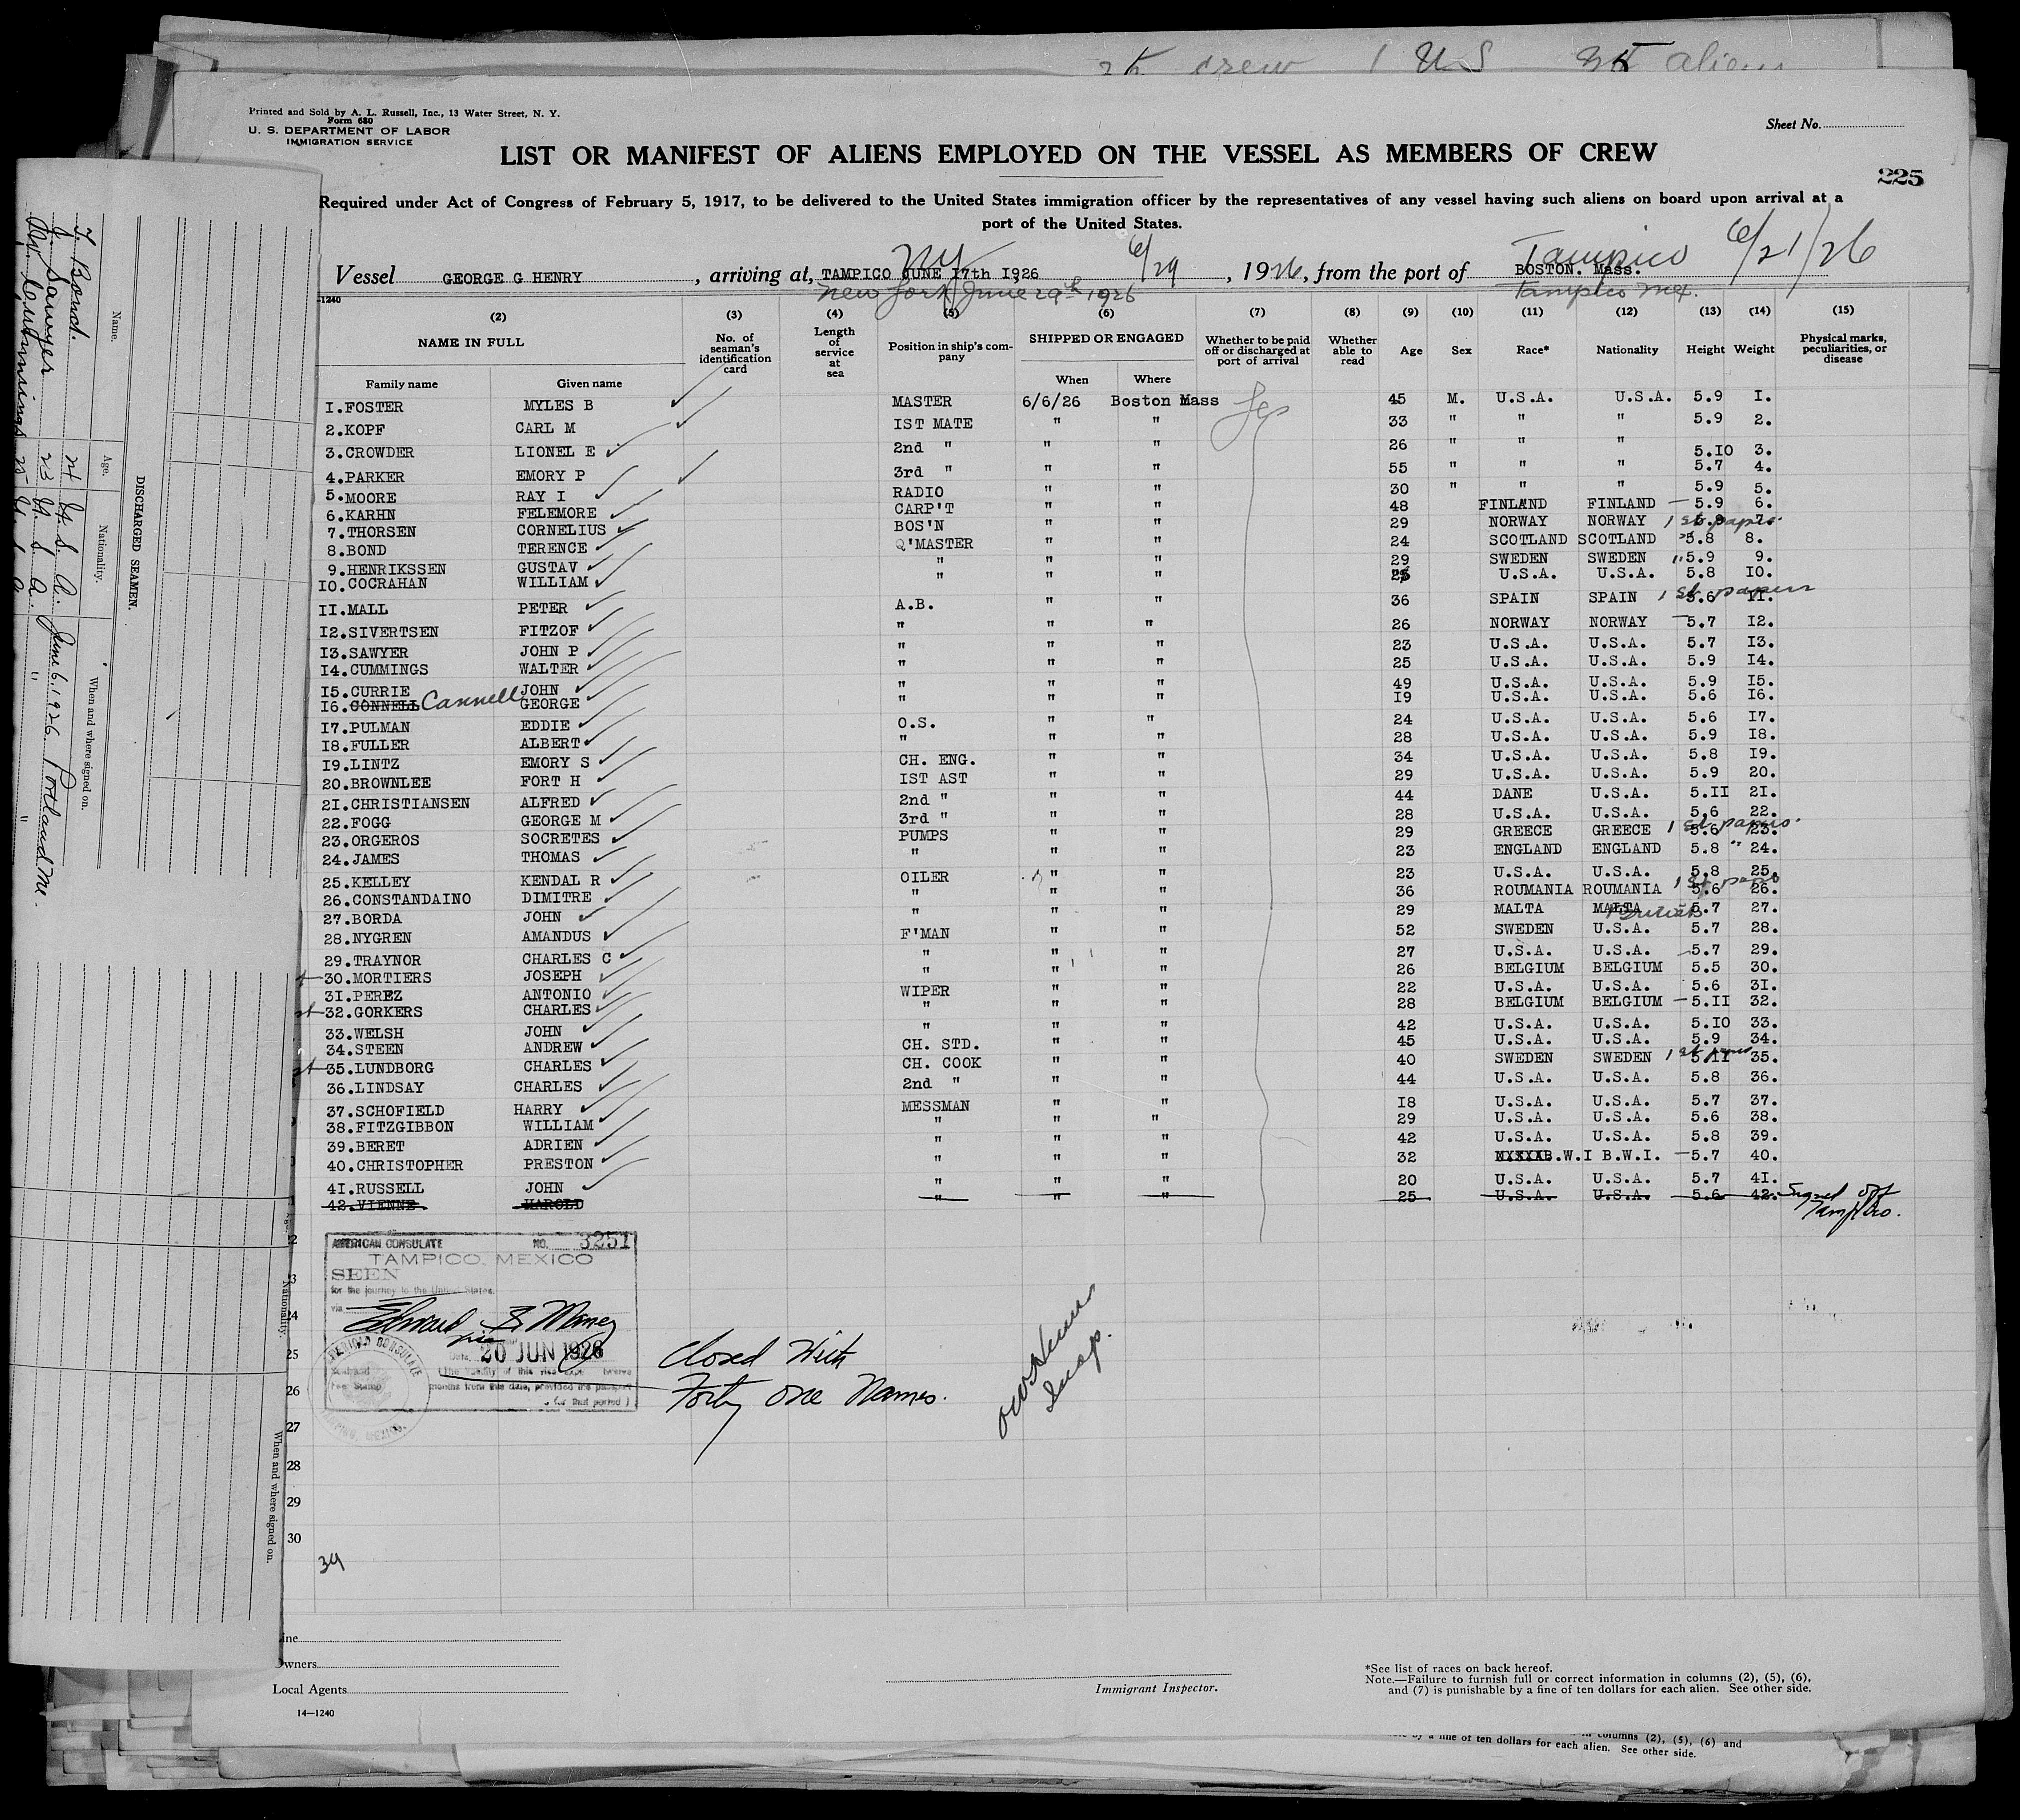 2K crew 1 U S 3K aliens
Printed and Sold by A. L. Russell, Inc., 13 Water Street, N. Y.
Form 680
U. S. DEPARTMENT OF LABOR
IMMIGRATION SERVICE
Sheet No.
LIST OR MANIFEST OF ALIENS EMPLOYED ON THE VESSEL AS MEMBERS OF CREW
225
Required under Act of Congress of February 5, 1917, to be delivered to the United States immigration officer by the representatives of any vessel having such aliens on board upon arrival at a
port of the United States.
NY 6/29 Tampico 6/21/26
Vessel GEORGE G HENRY, arriving at, TAMPICO JUNE I7th I926, 1926, from the port of BOSTON. Mass.
New York June 29th 1926 Tampico Mex.
1240
(2) (3) (4) (5) (6) (7) (8) (9) (10) (11) (12) (13) (14) (15)
NAME IN FULL No. of seaman's identification card Length of service at sea Position in ship's company SHIPPED OR ENGAGED Whether to be paid off or discharged at port of arrival Whether able to read Age Sex Race* Nationality Height Weight Physical marks, peculiarities, or disease
Family name Given name When Where
I.FOSTER MYLES B MASTER 6/6/26 Boston Mass Yes 45 M. U.S.A. U.S.A. 5.9 I.
2.KOPF CARL M IST MATE " " 33 " " " 5.9 2.
3.CROWDER LIONEL E 2nd " " " 26 " " " 5.IO 3.
4.PARKER EMORY P 3rd " " " 55 " " " 5.7 4.
5.MOORE RAY I RADIO " " 30 " " " 5.9 5.
6.KARHN FELEMORE CARP'T " " 48 FINLAND FINLAND 5.9 6.
7.THORSEN CORNELIUS BOS'N " " 29 NORWAY NORWAY 1st papers 5.9 7.
8.BOND TERENCE Q'MASTER " " 24 SCOTLAND SCOTLAND 5.8 8.
9.HENRIKSSEN GUSTAV " " " 29 SWEDEN SWEDEN " 5.9 9.
IO.COCRAHAN WILLIAM " " " 25 U.S.A. U.S.A. 5.8 IO.
II.MALL PETER A.B. " " 36 SPAIN SPAIN 1st papers 5.6 II.
I2.SIVERTSEN FITZOF " " " 26 NORWAY NORWAY 5.7 I2.
I3.SAWYER JOHN P " " " 23 U.S.A. U.S.A. 5.7 I3.
I4.CUMMINGS WALTER " " " 25 U.S.A. U.S.A. 5.9 I4.
I5.CURRIE JOHN " " " 49 U.S.A. U.S.A. 5.9 I5.
I6.CONNELL Cannell GEORGE " " " I9 U.S.A. U.S.A. 5.6 I6.
I7.PULMAN EDDIE O.S. " " 24 U.S.A. U.S.A. 5.6 I7.
I8.FULLER ALBERT " " " 28 U.S.A. U.S.A. 5.9 I8.
I9.LINTZ EMORY S CH. ENG. " " 34 U.S.A. U.S.A. 5.8 I9.
20.BROWNLEE FORT H IST AST " " 29 U.S.A. U.S.A. 5.9 20.
2I.CHRISTIANSEN ALFRED 2nd " " " 44 DANE U.S.A. 5.II 2I.
22.FOGG GEORGE M 3rd " " " 28 U.S.A. U.S.A. 5.6 22.
23.ORGEROS SOCRETES PUMPS " " 29 GREECE GREECE 1st papers 5.6 23.
24.JAMES THOMAS " " " 23 ENGLAND ENGLAND 5.8 " 24.
25.KELLEY KENDAL R OILER " " 23 U.S.A. U.S.A. 5.8 25.
26.CONSTANDAINO DIMITRE " " " 36 ROUMANIA ROUMANIA 1st papers 5.6 26.
27.BORDA JOHN " " " 29 MALTA MALTA British 5.7 27.
28.NYGREN AMANDUS F'MAN " " 52 SWEDEN U.S.A. 5.7 28.
29.TRAYNOR CHARLES C " " " 27 U.S.A. U.S.A. 5.7 29.
30.MORTIERS JOSEPH " " " 26 BELGIUM BELGIUM 5.5 30.
3I.PEREZ ANTONIO WIPER " " 22 U.S.A. U.S.A. 5.6 3I.
32.GORKERS CHARLES " " " 28 BELGIUM BELGIUM 5.II 32.
33.WELSH JOHN " " " 42 U.S.A. U.S.A. 5.IO 33.
34.STEEN ANDREW CH. STD. " " 45 U.S.A. U.S.A. 5.9 34.
35.LUNDBORG CHARLES CH. COOK " " 40 SWEDEN SWEDEN 1st papers 5.II 35.
36.LINDSAY CHARLES 2nd " " " 44 U.S.A. U.S.A. 5.8 36.
37.SCHOFIELD HARRY MESSMAN " " I8 U.S.A. U.S.A. 5.7 37.
38.FITZGIBBON WILLIAM " " " 29 U.S.A. U.S.A. 5.6 38.
39.BERET ADRIEN " " " 42 U.S.A. U.S.A. 5.8 39.
40.CHRISTOPHER PRESTON " " " 32 B.W.I B.W.I. 5.7 40.
4I.RUSSELL JOHN " " " 20 U.S.A. U.S.A. 5.7 4I.
42.VIENNE HAROLD " " " 25 U.S.A. U.S.A. 5.6 42. Signed off
Tampico.
AMERICAN CONSULATE NO. 3251
TAMPICO, MEXICO
SEEN
for the journey to the United States.
via
Date 20 JUN 1926
Closed With
Forty One Names.
24
25
26
27
28
29
30
34
Owners
Local Agents
Immigrant Inspector.
*See list of races on back hereof.
Note.—Failure to furnish full or correct information in columns (2), (5), (6),
and (7) is punishable by a fine of ten dollars for each alien. See other side.
14—1240
columns (2), (5), (6) and
by a fine of ten dollars for each alien. See other side.
DISCHARGED SEAMEN.
Name. Age. Nationality. When and where signed on.
T. Bond. 24 U. S. A. June 6, 1926 Portland Me.
J. Sawyer 23 U. S. A. " "
W. Cummings 25 U. S. A.
Nationality.
When and where signed on.